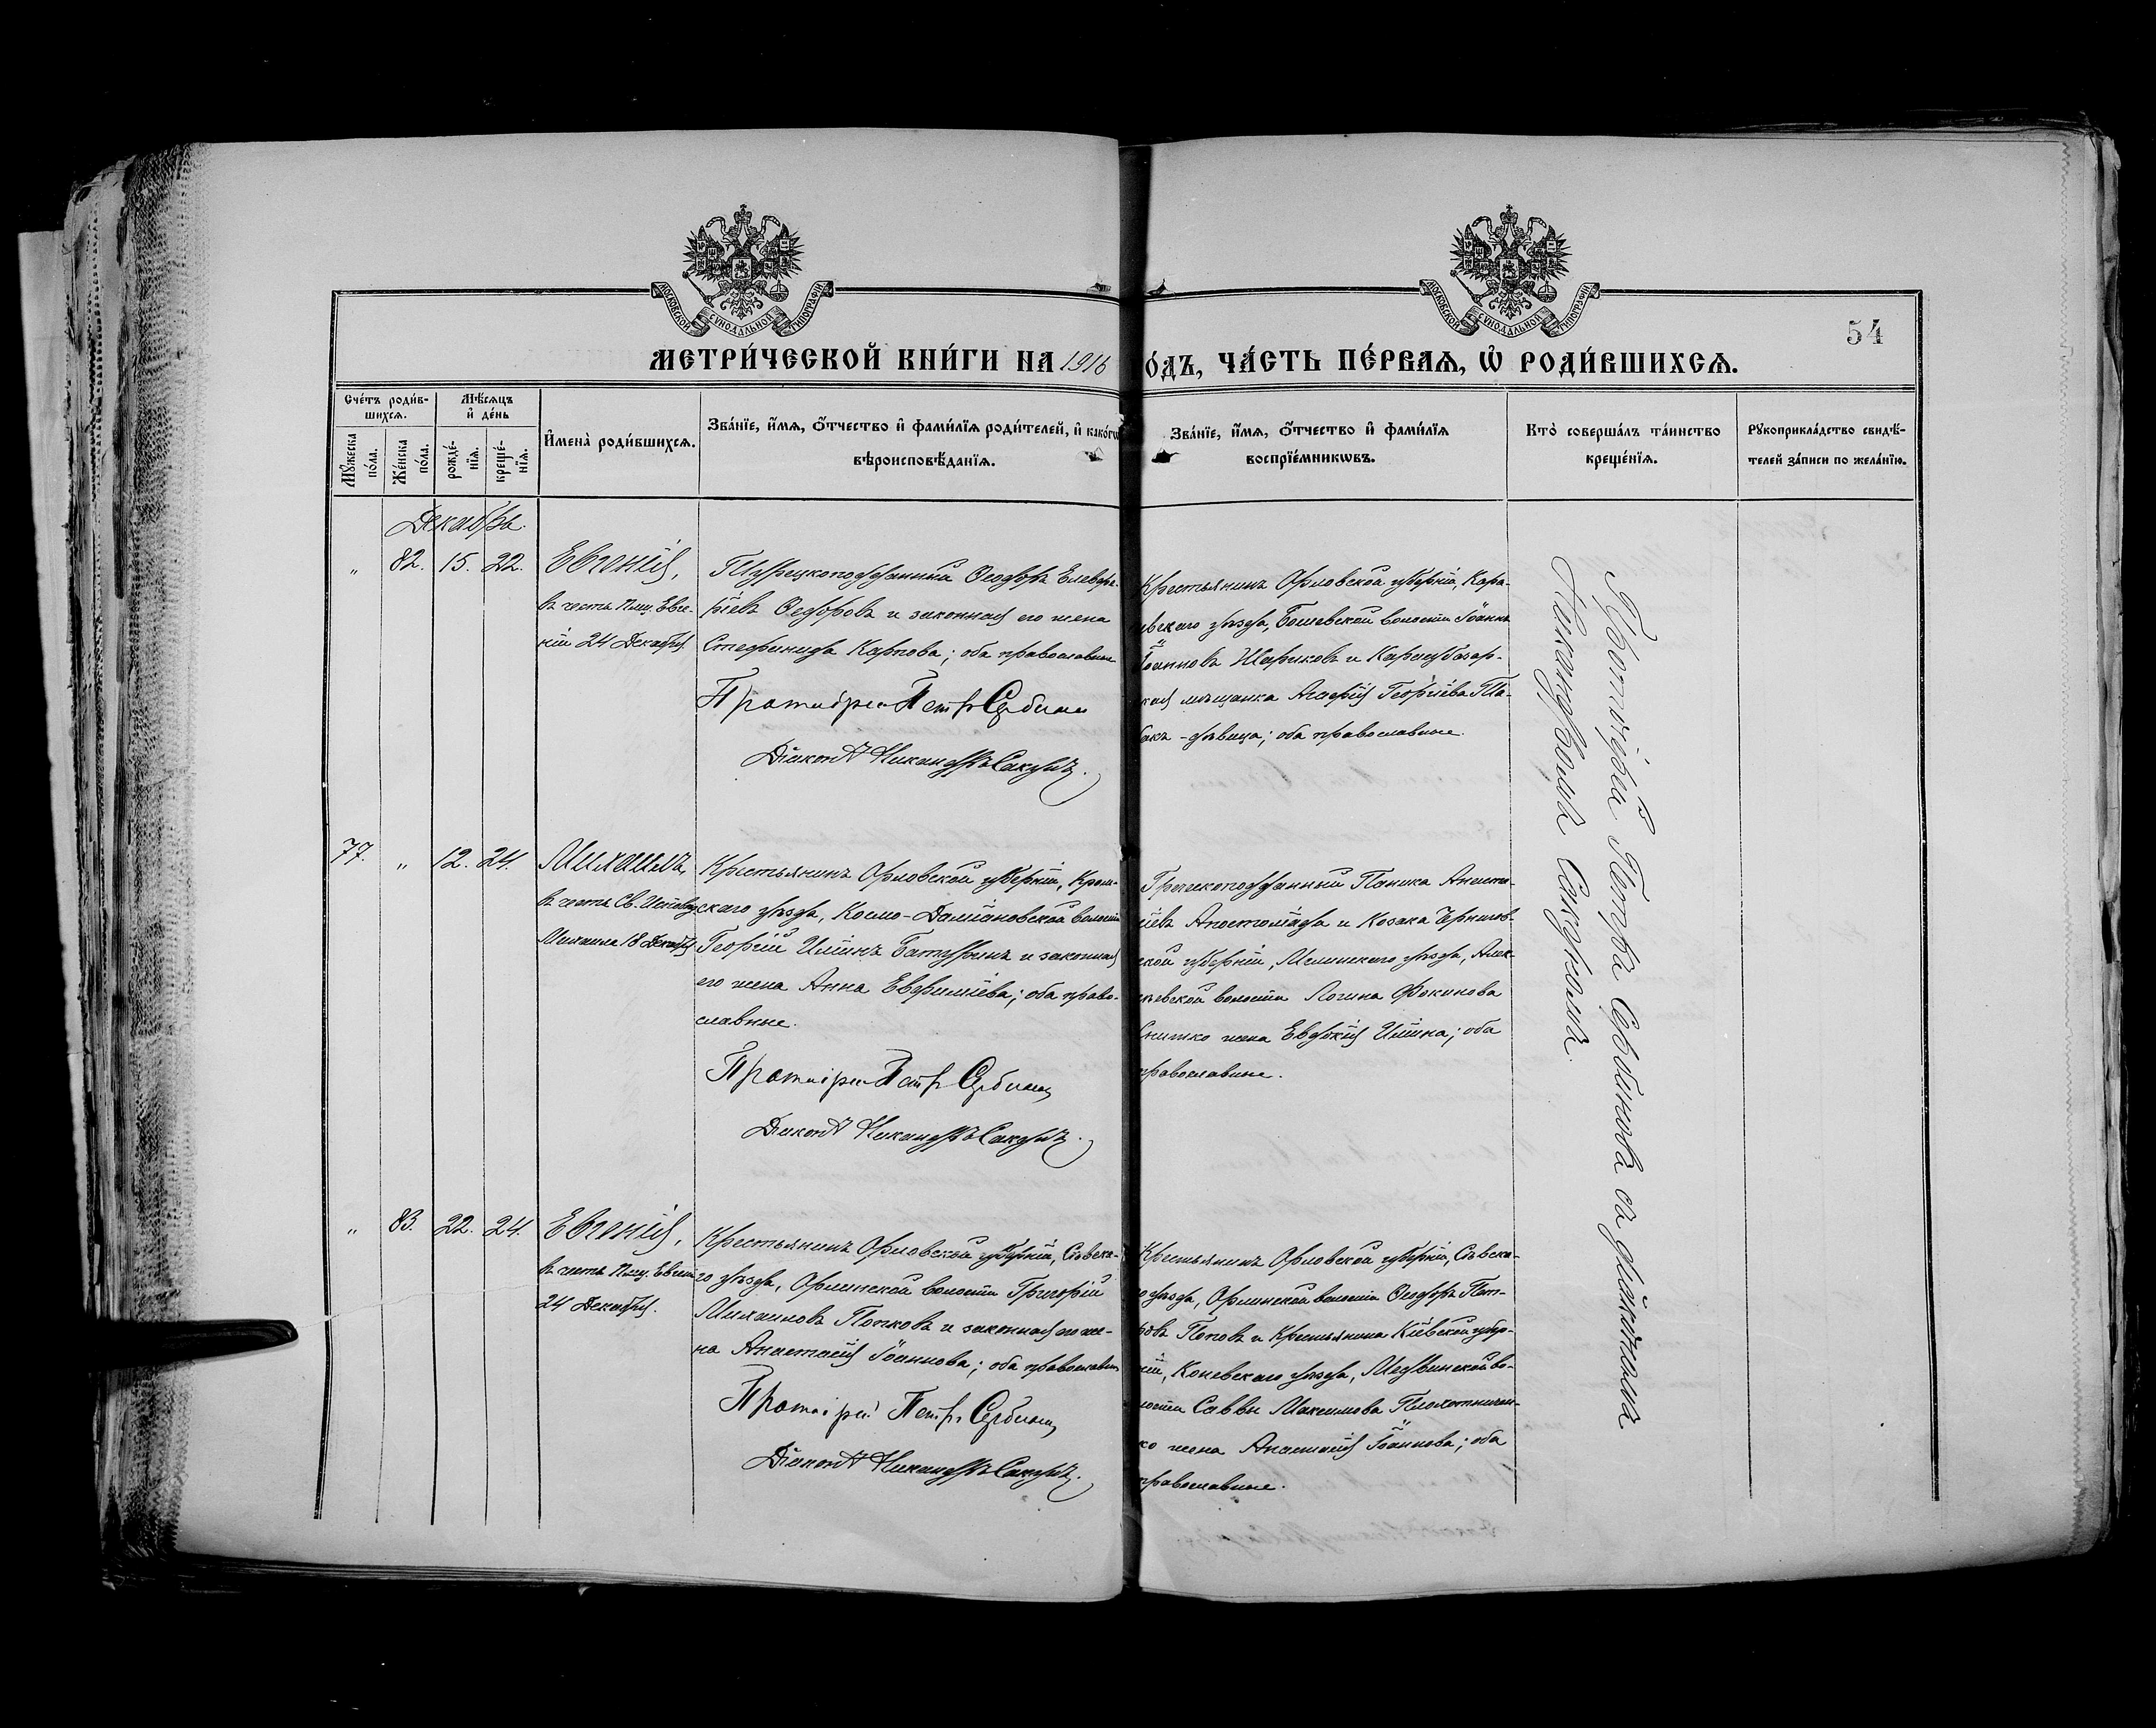 МОСКОВСКОЙ СѴНОДАЛЬНОЙ ТИПОГРАФІИ
МОСКОВСКОЙ СѴНОДАЛЬНОЙ ТИПОГРАФІИ
54
МЕТРИ́ЧЕСКОЙ КНИ́ГИ НА 1916
О́ДЪ, ЧА́СТЬ ПЕ́РВАѦ, Ѡ҆ РОДИ́ВШИХСѦ.
Сче́тъ роди́в-
шихсѧ.
Мѣ́сѧцъ
и҆ де́нь
Мꙋ́жеска
по́ла.
Же́нска
по́ла.
рожде́-
нїѧ.
креще́-
нїѧ.
И҆мена̀ роди́вшихсѧ.
Зва́нїе, и҆́мѧ, ѻ҆́тчество и҆ фами́лїѧ роди́телей, и҆ како́гѡ
вѣроисповѣ́данїѧ.
Зва́нїе, и҆́мѧ, ѻ҆́тчество и҆ фами́лїѧ
воспрїе́мникѡвъ.
Кто̀ соверша́лъ та́инство
креще́нїѧ.
Рꙋкоприкла́дство свидѣ́-
телей за́писи по жела́нїю.
Декабрь.
" 82. 15. 22. Евгенія,
въ честь Пмц. Евге-
ніи 24 Декабря.
Турецкоподданный Ѳеодоръ Елевѳе-
ріевъ Ѳедоровъ и законная его жена
Стефанида Карпова; оба православные.
Протоіерей Петръ Сербиновъ
Діаконъ Никандръ Сакунъ.
Крестьянинъ Орловской губерніи, Кара-
евскаго уѣзда, Бошевской волости Іоаннъ
Іоанновъ Шариковъ и Карасубазар-
кая мѣщанка Агафія Георгіева Та-
бакъ - дѣвица; оба православные.
77. " 12. 24. Михаилъ,
въ честь Св. Исповѣд.
Михаила 18 Декабря.
Крестьянинъ Орловской губерніи, Кром-
скаго уѣзда, Космо-Даміановской волости
Георгій Иліинъ Батуринъ и законная
его жена Анна Евфиміева; оба право-
славные.
Протоіерей Петръ Сербиновъ
Діаконъ Никандръ Сакунъ.
Греческоподданный Паника Анаста-
сіевъ Апостоліади и Козака Чернигов-
ской губерніи, Мглинскаго уѣзда, Алек-
евской волости Логина Фокинова
Снитко жена Евдокія Иліина; оба
православные.
" 83. 22. 24. Евгенія,
въ честь Пмц. Евгеніи
24 Декабря.
Крестьянинъ Орловской губерніи, Сѣвска-
го уѣзда, Орлинской волости Григорій
Михаиловъ Попковъ и законная его же-
на Анастасія Іоаннова; оба православные
Протоіерей Петръ Сербиновъ
Діаконъ Никандръ Сакунъ.
Крестьянинъ Орловской губерніи, Сѣвска-
о уѣзда, Орлинской волости Ѳеодоръ Пет-
ровъ Поповъ и Крестьянина Кіевской губер-
ніи, Каневскаго уѣзда, Медвинской во-
лости Саввы Максимова Плохотничен-
ко жена Анастасія Іоаннова; оба
православные.
Протоіерей Петръ Сербиновъ съ діакономъ
Никандромъ Сакуномъ.